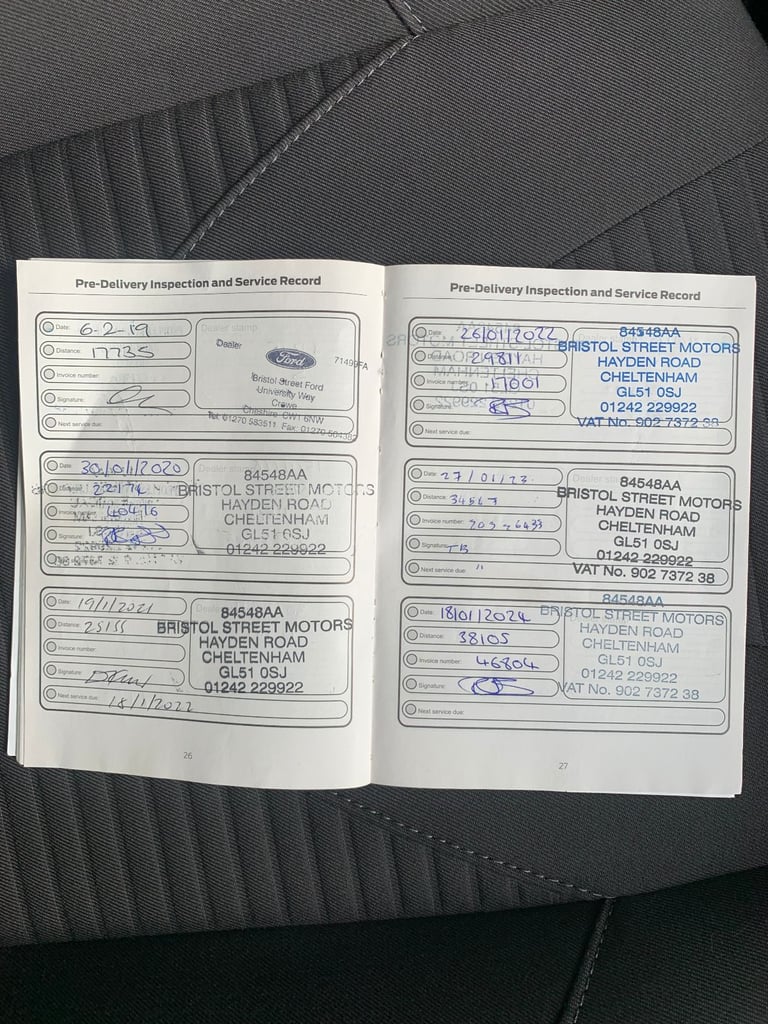 Pre-Delivery Inspection and Service Record
Date: 6-2-19
Distance: 17735
Invoice number:
Signature:
Next service due:
Dealer stamp
Dealer
Ford
71499FA
Bristol Street Ford
University Way
Crewe
Cheshire CW1 6NW
Tel: 01270 583511 Fax: 01270
Date: 30/01/2020
Distance:
Invoice number: 40416
Signature:
84548AA
BRISTOL STREET MOTORS
HAYDEN ROAD
CHELTENHAM
GL51 0SJ
01242 229922
Date: 19/1/2021
Distance: 25155
Invoice number:
Signature:
Next service due: 18/1/2022
84548AA
BRISTOL STREET MOTORS
HAYDEN ROAD
CHELTENHAM
GL51 0SJ
01242 229922
26
Pre-Delivery Inspection and Service Record
Date: 26/01/2022
Distance: 29811
Invoice number:
Signature:
Next service due:
84548AA
BRISTOL STREET MOTORS
HAYDEN ROAD
CHELTENHAM
GL51 0SJ
01242 229922
VAT No. 902 7372 38
Date: 27/01/23
Distance: 34567
Invoice number:
Signature: TB
Next service due: "
84548AA
BRISTOL STREET MOTORS
HAYDEN ROAD
CHELTENHAM
GL51 0SJ
01242 229922
VAT No. 902 7372 38
Date: 18/01/2024
Distance: 38105
Invoice number: 46804
Signature:
Next service due:
84548AA
BRISTOL STREET MOTORS
HAYDEN ROAD
CHELTENHAM
GL51 0SJ
01242 229922
VAT No. 902 7372 38
27